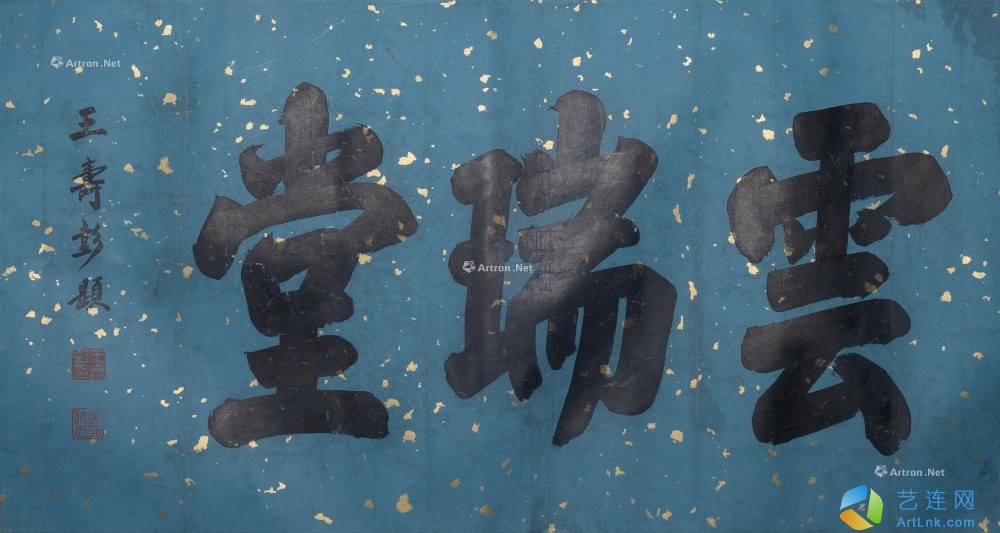 雲瑞堂
王壽彭題
Artron.Net
Artron.Net
Artron.Net
艺连网
ArtLnk.com